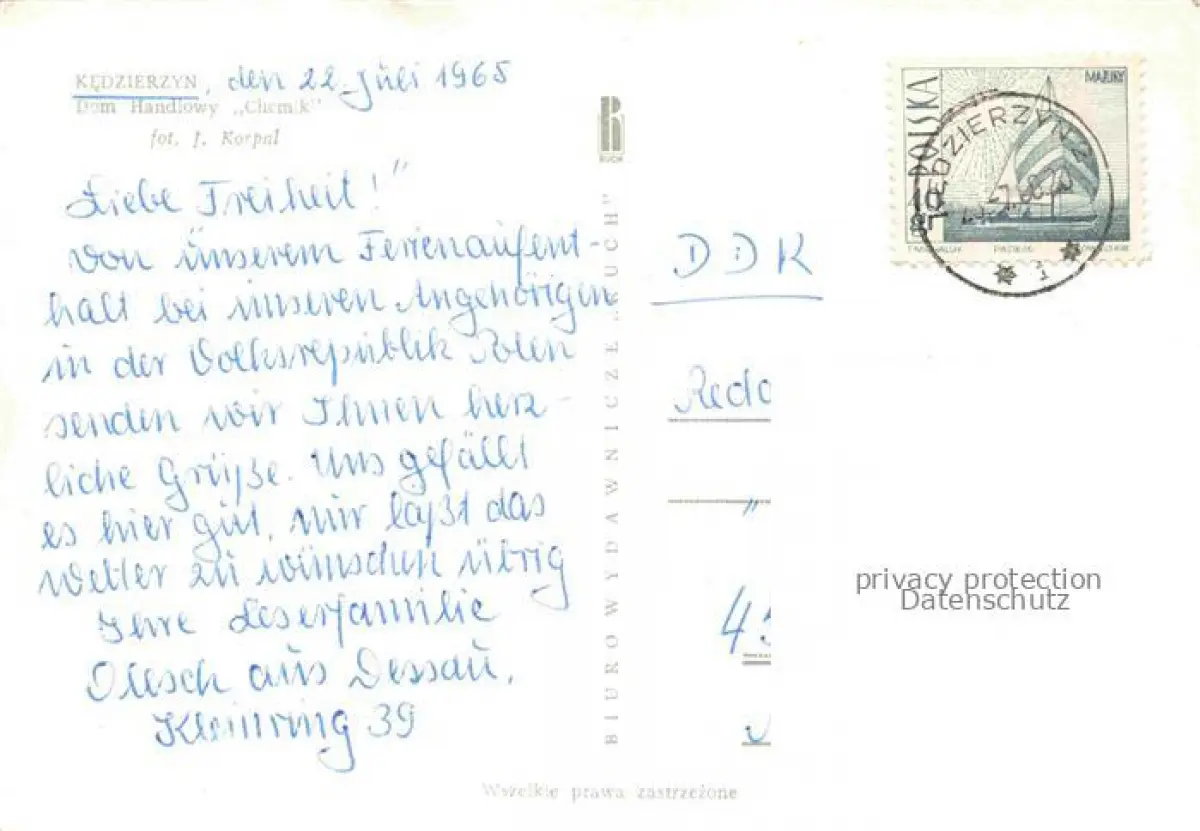 KĘDZIERZYN, den 22. Juli 1965
Dom Handlowy „Chemik"
fot. J. Korpal
Liebe Freiheit!"
Von unserem Ferienaufent-
halt bei unseren Angehörigen
in der Volksrepublik Polen
senden wir Ihnen herz-
liche Grüße. Uns gefällt
es hier gut, nur laßt das
Wetter zu wünschen übrig
Ihre Leserfamilie
Olesch aus Dessau,
Kleinring 39
RUCH
BIUROWYDAWNICZE „RUCH"
POLSKA
MAZURY
KĘDZIERZYN 2
DDR
Reda
"
45
privacy protection
Datenschutz
Wszelkie prawa zastrzeżone